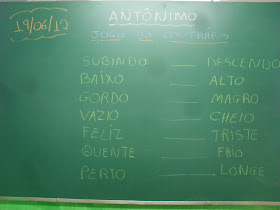 19/06/12
ANTÔNIMO
JOGO DO CONTRÁRIO
SUBINDO ___ DESCENDO
BAIXO ___ ALTO
GORDO ___ MAGRO
VAZIO ___ CHEIO
FELIZ ___ TRISTE
QUENTE ___ FRIO
PERTO ___ LONGE